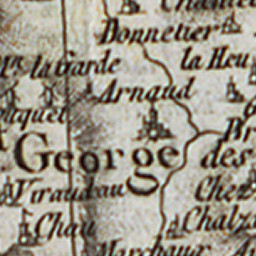 Donnetier
la Heu
la Garde
Arnaud
George des
Viraudau
Chez
Chau
Chalz
Marchaux